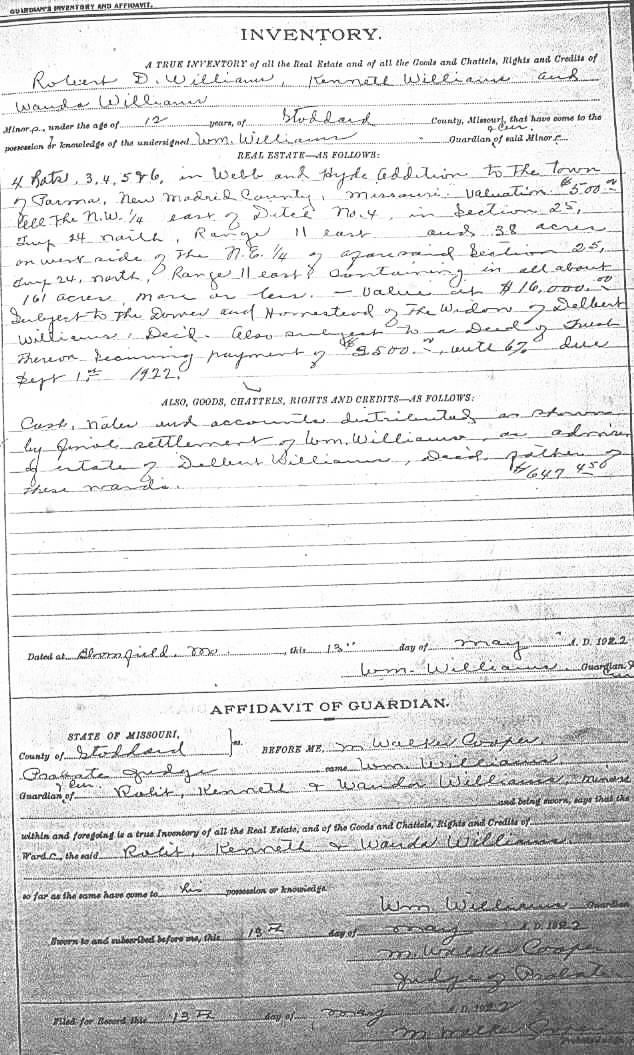 GUARDIAN'S INVENTORY AND AFFIDAVIT.
INVENTORY.
A TRUE INVENTORY of all the Real Estate and of all the Goods and Chattels, Rights and Credits of
Robert D. Williams, Kenneth Williams and
Wanda Williams
Minors, under the age of 12 years, of Stoddard County, Missouri, that have come to the
possession or knowledge of the undersigned Wm. Williams Guardian & Cur. of said Minors
REAL ESTATE—AS FOLLOWS:
4 Lots, 3, 4, 5 & 6, in Webb and Hyde Addition to the town
of Parma, New Madrid County, Missouri. Valuation $500.00
All The N.W. 1/4 east of Ditch No. 4, in Section 25,
Twp 24 north, Range 11 east and 38 acres
on west side of The N.E. 1/4 of aforesaid Section 25,
Twp 24, north, Range 11 east, containing in all about
161 acres, more or less. — Value at $16,000.00
Subject to the Dower and Homestead of The Widow of Delbert
Williams, Dec'd. Also subject to a Deed of Trust
Thereon securing payment of $2500.00, with 6% due
Sept 1st 1922.
ALSO, GOODS, CHATTELS, RIGHTS AND CREDITS—AS FOLLOWS:
Cash, notes and accounts distributed as shown
by final settlement of Wm. Williams, as admr
of estate of Delbert Williams, Dec'd. father of
these wards. $6474.50
Dated at Bloomfield, Mo., this 13" day of May A. D. 1922
Wm. Williams Guardian &
Cur
AFFIDAVIT OF GUARDIAN.
STATE OF MISSOURI,
County of Stoddard } ss. BEFORE ME, M. Walker Cooper,
Probate Judge came Wm Williams
Guardian & Cur. of Robt, Kenneth & Wanda Williams, Minors
and being sworn, says that the
within and foregoing is a true Inventory of all the Real Estate, and of the Goods and Chattels, Rights and Credits of
Wards, the said Robt, Kenneth & Wanda Williams.
so far as the same have come to his possession or knowledge.
Wm Williams Guardian
Sworn to and subscribed before me, this 13th day of May A. D. 1922
M. Walker Cooper
Judge of Probate
Filed for Record this 13th day of May A. D. 1922
M. Walker Cooper